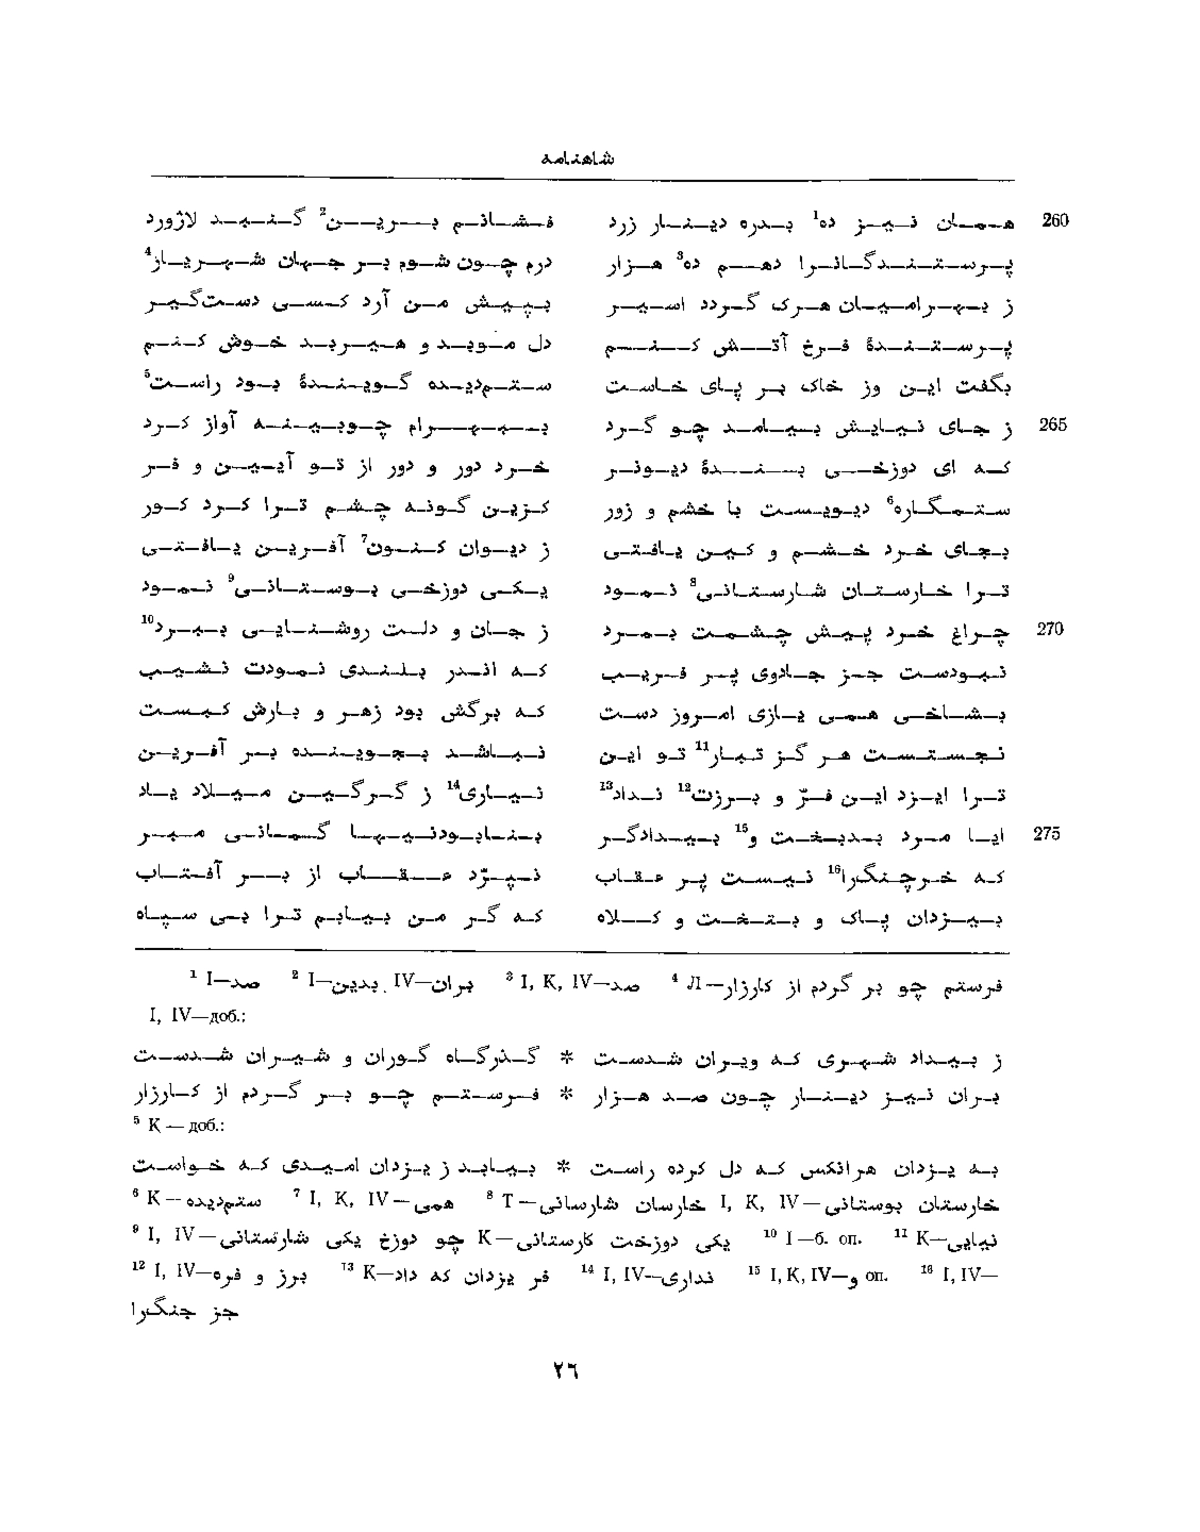 شاهنامه
همان نیز ده¹ بدره دینار زرد فشانم برین² گنبد لاژورد 260
پرستندگانرا دهم ده³ هزار درم چون شوم بر جهان شهریار⁴
ز بهرامیان هرک گردد اسیر بپیش من آرد کسی دست‌گیر
پرستندهٔ فرخ آتش کنم دل موبد و هیربد خوش کنم
بگفت این وز خاک بر پای خاست ستم‌دیده گویندهٔ بود راست⁵
ز جای نیایش بیامد چو گرد ببهرام چوبینه آواز کرد 265
که ای دوزخی بندهٔ دیونر خرد دور و دور از تو آیین و فر
ستمگاره⁶ دیویست با خشم و زور کزین گونه چشم ترا کرد کور
بجای خرد خشم و کین یافتی ز دیوان کنون⁷ آفرین یافتی
ترا خارستان شارستانی⁸ نمود یکی دوزخی بوستانی⁹ نمود
چراغ خرد پیش چشمت بمرد ز جان و دلت روشنایی ببرد¹⁰ 270
نبودست جز جادوی پر فریب که اندر بلندی نمودت نشیب
بشاخی همی یازی امروز دست که برگش بود زهر و بارش کبست
نجستست هر گز تبار¹¹ تو این نباشد بجوینده بر آفرین
ترا ایزد این فرّ و برزت¹² نداد¹³ نیاری¹⁴ ز گرگین میلاد یاد
ایا مرد بدبخت و¹⁵ بیدادگر بنابودنیها گمانی مبر 275
که خرچنگرا¹⁶ نیست پر عقاب نپرّد عقاب از بر آفتاب
بیزدان پاک و بتخت و کلاه که گر من بیابم ترا بی سپاه
¹ I—صد ² I—بدین IV—بران ³ I, K, IV—صد ⁴ Л—فرستم چو بر گردم از کارزار
I, IV—доб.:
ز بیداد شهری که ویران شدست * گذرگاه گوران و شیران شدست
بران نیز دینار چون صد هزار * فرستم چو بر گردم از کارزار
⁵ K — доб.:
به یزدان هرانکس که دل کرده راست * بیابد ز یزدان امیدی که خواست
⁶ K—ستم‌دیده ⁷ I, K, IV—همی ⁸ T—خارسان شارسانی I, K, IV—خارستان بوستانی
⁹ I, IV—چو دوزخ یکی شارستانی K—یکی دوزخت کارستانی ¹⁰ I—б. оп. ¹¹ K—نیایی
¹² I, IV—برز و فره ¹³ K—فر یزدان که داد ¹⁴ I, IV—نداری ¹⁵ I, K, IV—و оп. ¹⁶ I, IV—
جز جنگرا
٢٦